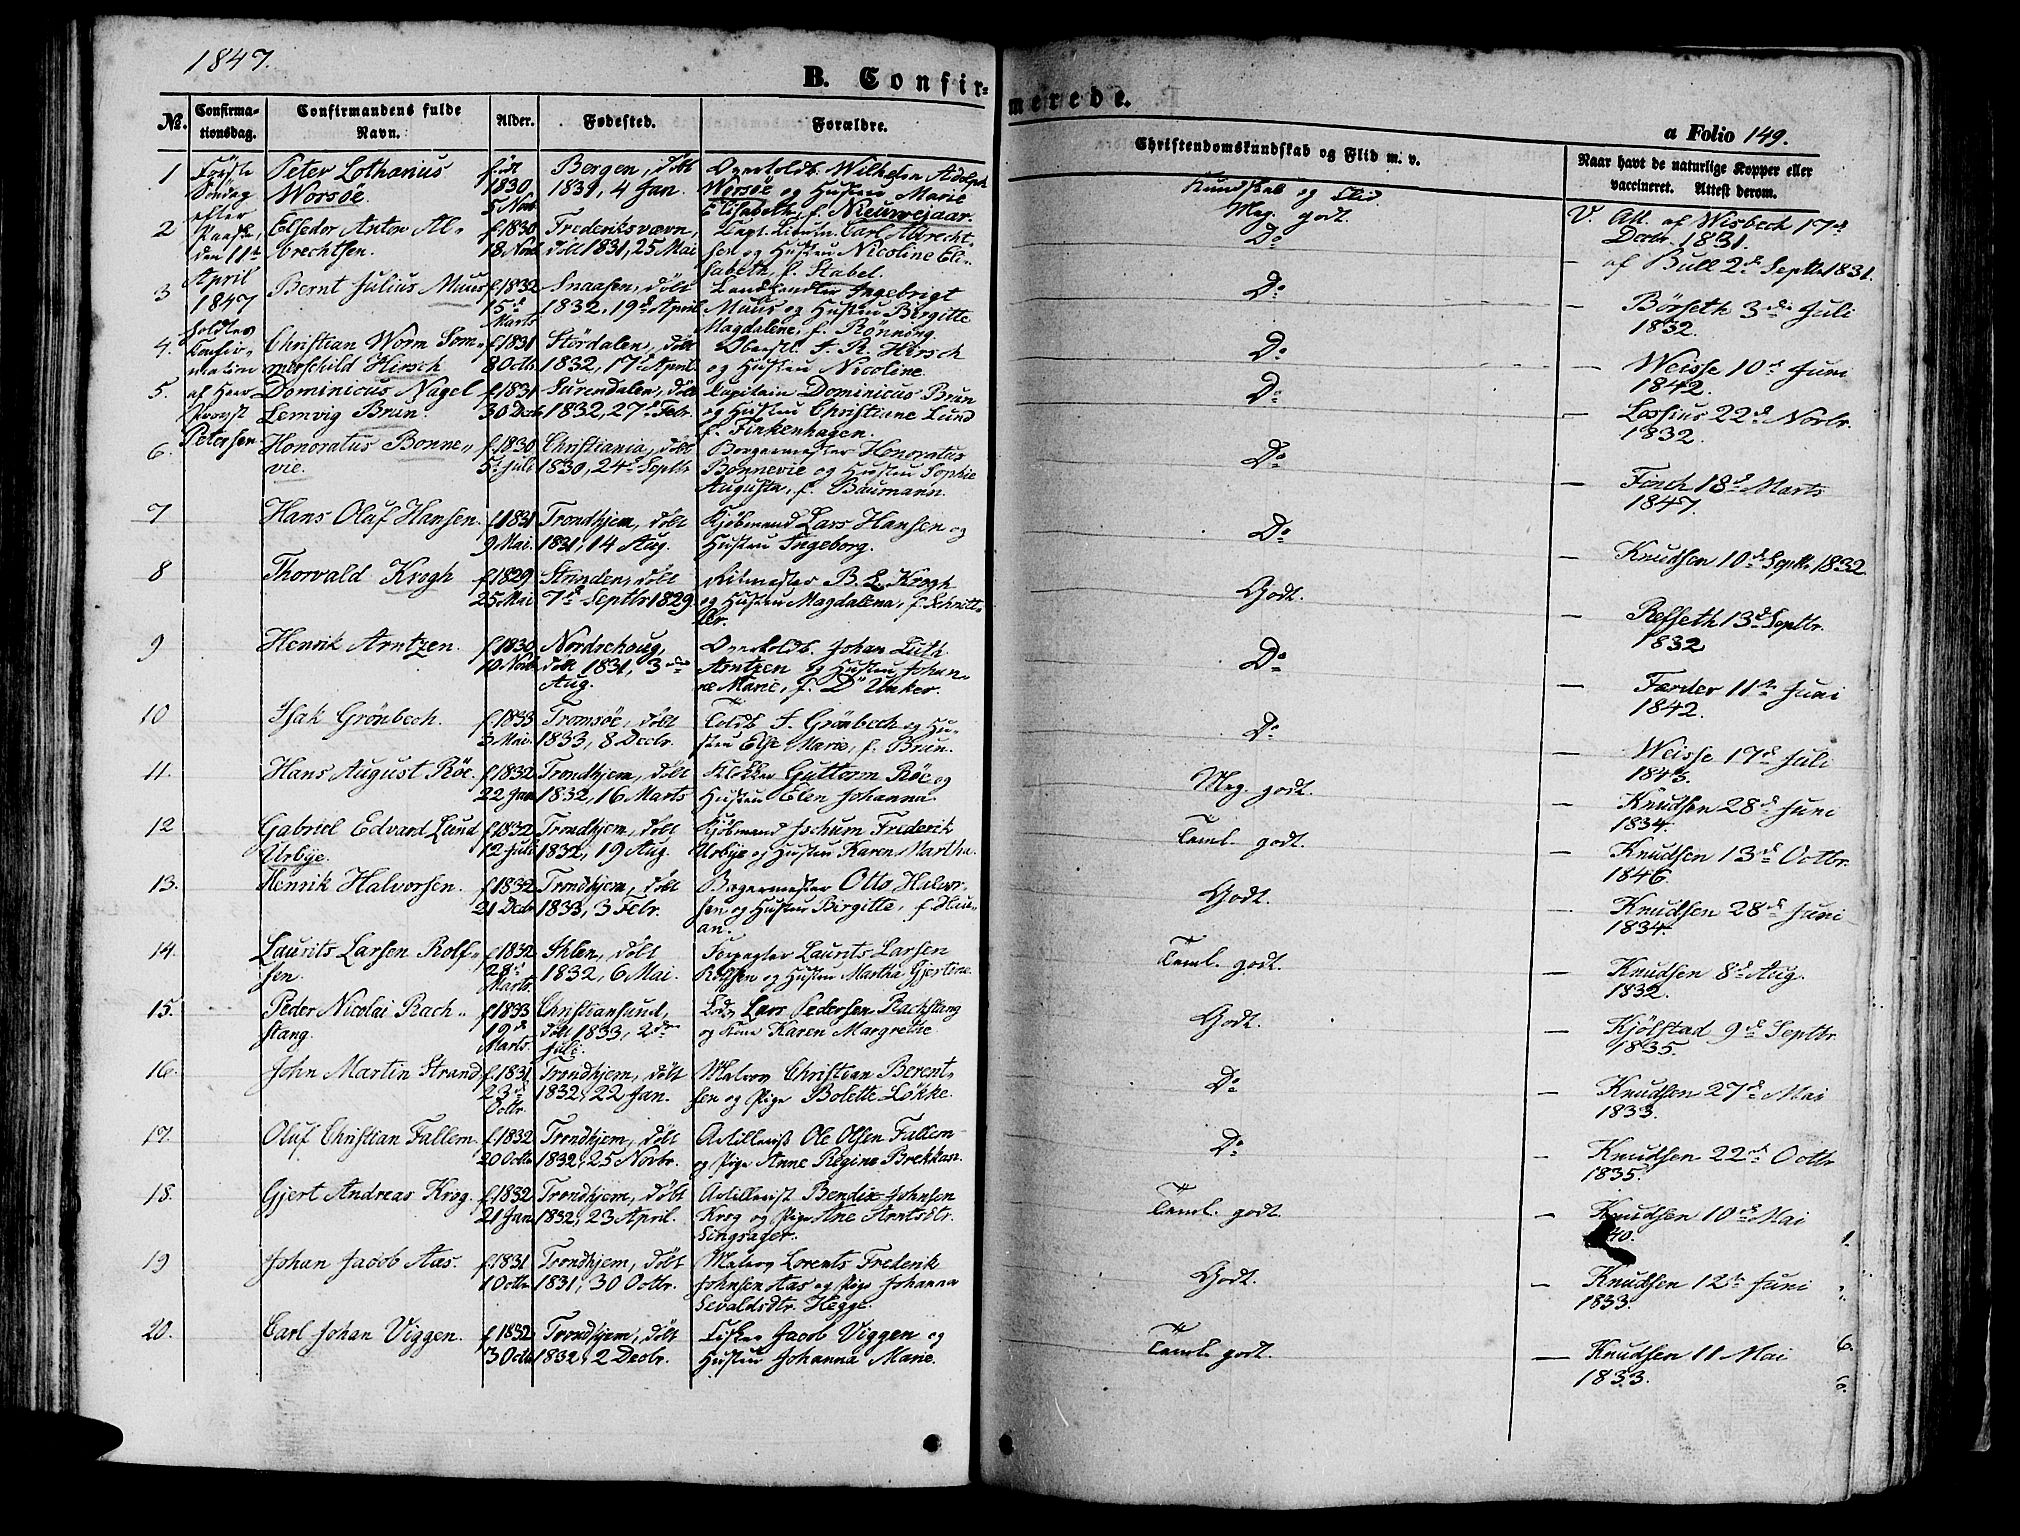 1847.
B. Confir-
merede.
a Folio 149.
No. Confirma-tionsdag. Confirmandens fulde Navn. Alder. Fødested. Forældre. Christendomskundskab og Flid m. v. Naar havt de naturlige Kopper eller vaccineret. Attest derom.
Første
Søndag
efter
Paaske
den 11te
April
1847
holdtes
Confir-
mation
af Herr
Provst
Petersen
1 Peter Lothanius
Worsöe.
født
1830
5 Nov.
Bergen, döbt
1831, 4 Jan.
Overtoldb. Wilhelm Adolph
Worsöe og Hustru Marie
Elisabeth, f. Nieuwejaar.
Kundskab og Flid
Meg. godt.
V. Att. af Wisbech 17de
Decbr. 1831.
2 Elsedor Anton Al-
brechtsen.
f. 1830
18 Novb
Frederiksværn,
död 1831, 25 Mai
Capt. Lieutn. Carl Albrecht-
sen og Hustru Nicoline Eli-
sabeth, f. Stabel.
Do
— af Bull 2d Septb 1831.
3 Bernt Julius Muus
f. 1832
15d
Marts
Snaasen, döbt
1832, 19d April
Landhandler Ingebrigt
Muus og Hustru Birgitte
Magdalene, f. Rönning.
Do
— Börseth 3die Juli
1832.
4. Christian Worm Som-
merschild Hirsch
f. 1831
8 Octb.
Stördalen, döbt
1832, 17d April
Oberstl. J. R. Hirsch
og Hustru Nicoline.
Do
— Weisse 10d Juni
1842.
5. Dominicus Nagel
Lemvig Brun.
f. 1831
30 Decb
Surendalen, döbt
1832, 27d Febr.
Capitain Dominicus Brun
og Hustru Christiane Lund
f. Finkenhagen.
Do
— Lossius 22d Novbr.
1832.
6. Honoratus Bonne-
vie.
f. 1830
5d Juli
Christiania, döbt
1830, 24d Septb
Borgermester Honoratus
Bonnevie og Hustru Sophie
Augusta, f. Baumann.
Do
— Finch 18d Marts
1847.
7 Hans Oluf Hansen.
f. 1831
9 Mai.
Trondhjem, döbt
1831, 14 Aug.
Kjöbmand Lars Hansen og
Hustru Ingeborg.
Do
— Knudsen 10d Septb. 1832
8 Thorvald Krogh
f. 1829
25 Mai
Stranden, döbt
7d Septbr 1829
Ritmester B. L. Krogh
og Hustru Magdalena, f. Schnitt-
ler.
Godt.
— Reffeth 13d Septbr.
1832
9 Henrik Arntzen.
f. 1830
10 Novb.
Nordrehoug,
döbt 1831, 3die
Aug.
Overtoldb. Johan Luth.
Arntzen og Hustru Johan-
ne Marie, f. Ds Unker.
Do
— Færder 11te Juni
1842.
10 Isak Grönbech.
f. 1833
3 Mai.
Tromsöe, döbt
1833, 8 Decbr.
Toldb. J. Grönbech og Hu-
stru Else Marie, f. Brun.
Do
— Weisse 17d Juli
1843.
11. Hans August Röe.
f. 1832
22 Jan
Trondhjem, döbt
1832, 16 Marts
Klokker Guttorm Röe og
Hustru Elen Johanna.
Meg. godt.
— Knudsen 28d Juni
1834.
12 Gabriel Edvard Lund
Urbye.
f. 1832
12 Juli
Trondhjem, döbt
1832, 19 Aug.
Kjöbmand Jochum Frederik
Urbye og Hustru Karen Martha.
Teml. godt.
— Knudsen 13d Octbr.
1846.
13. Henrik Halvorsen.
f. 1832
21 Decb
Trondhjem, döbt
1833, 3 Febr.
Bogermester Otto Halvor-
sen og Hustru Birgitte, f. Hau-
an.
Godt.
— Knudsen 28d Juni
1834.
14. Laurits Larsen Rolf-
sen.
f. 1832
28d
Marts.
Ihlen, döbt
1832, 6 Mai.
Forpagter Laurits Larsen
Rolfsen og Hustru Martha Gjertine
Teml. godt.
— Knudsen 8d Aug.
1832.
15. Peder Nicolai Rach-
stang.
f. 1833
19d
Marts.
Christiansund,
döbt 1833, 2den
Juli.
Lods Lars Pedersen Rachstang
og Kone Karen Margrethe
Godt.
— Kjölstad 9d Septbr.
1835.
16. John Martin Strand
f. 1831
23d
Octbr
Trondhjem, döbt
1832, 22 Jan.
Matros Christian Berent-
sen og Pige Bolette Lökke.
Do
— Knudsen 27d Mai
1833.
17. Oluf Christian Fallem.
f. 1832
20 Octb
Trondhjem, döbt
1832, 25 Novbr.
Artillerist Ole Olsen Fallem
og Pige Anne Regine Brekkan.
Do
— Knudsen 22d Octbr
1835.
18. Gjert Andreas Krog.
f. 1832
21 Jan
Trondhjem, döbt
1832, 23 April.
Artillerist Bendix Johnsen
Krog og Pige Ane Arntsdtr.
Singsager.
Teml. godt.
— Knudsen 10d Mai
40.
19 Johan Jacob Aas.
f. 1831
1 Octb
Trondhjem, döbt
1831, 30 Octbr.
Matros Lorents Frederik
Johnsen Aas og Pige Johanna
Sevaldsdtr. Hegge.
Godt.
— Knudsen 12te Juni
1833.
20. Carl Johan Viggen.
f. 1832
13 Octb
Trondhjem, döbt
1832, 2 Decbr.
Fisker Jacob Viggen og
Hustru Johanna Marie.
Teml. godt.
— Knudsen 11 Mai
1833.